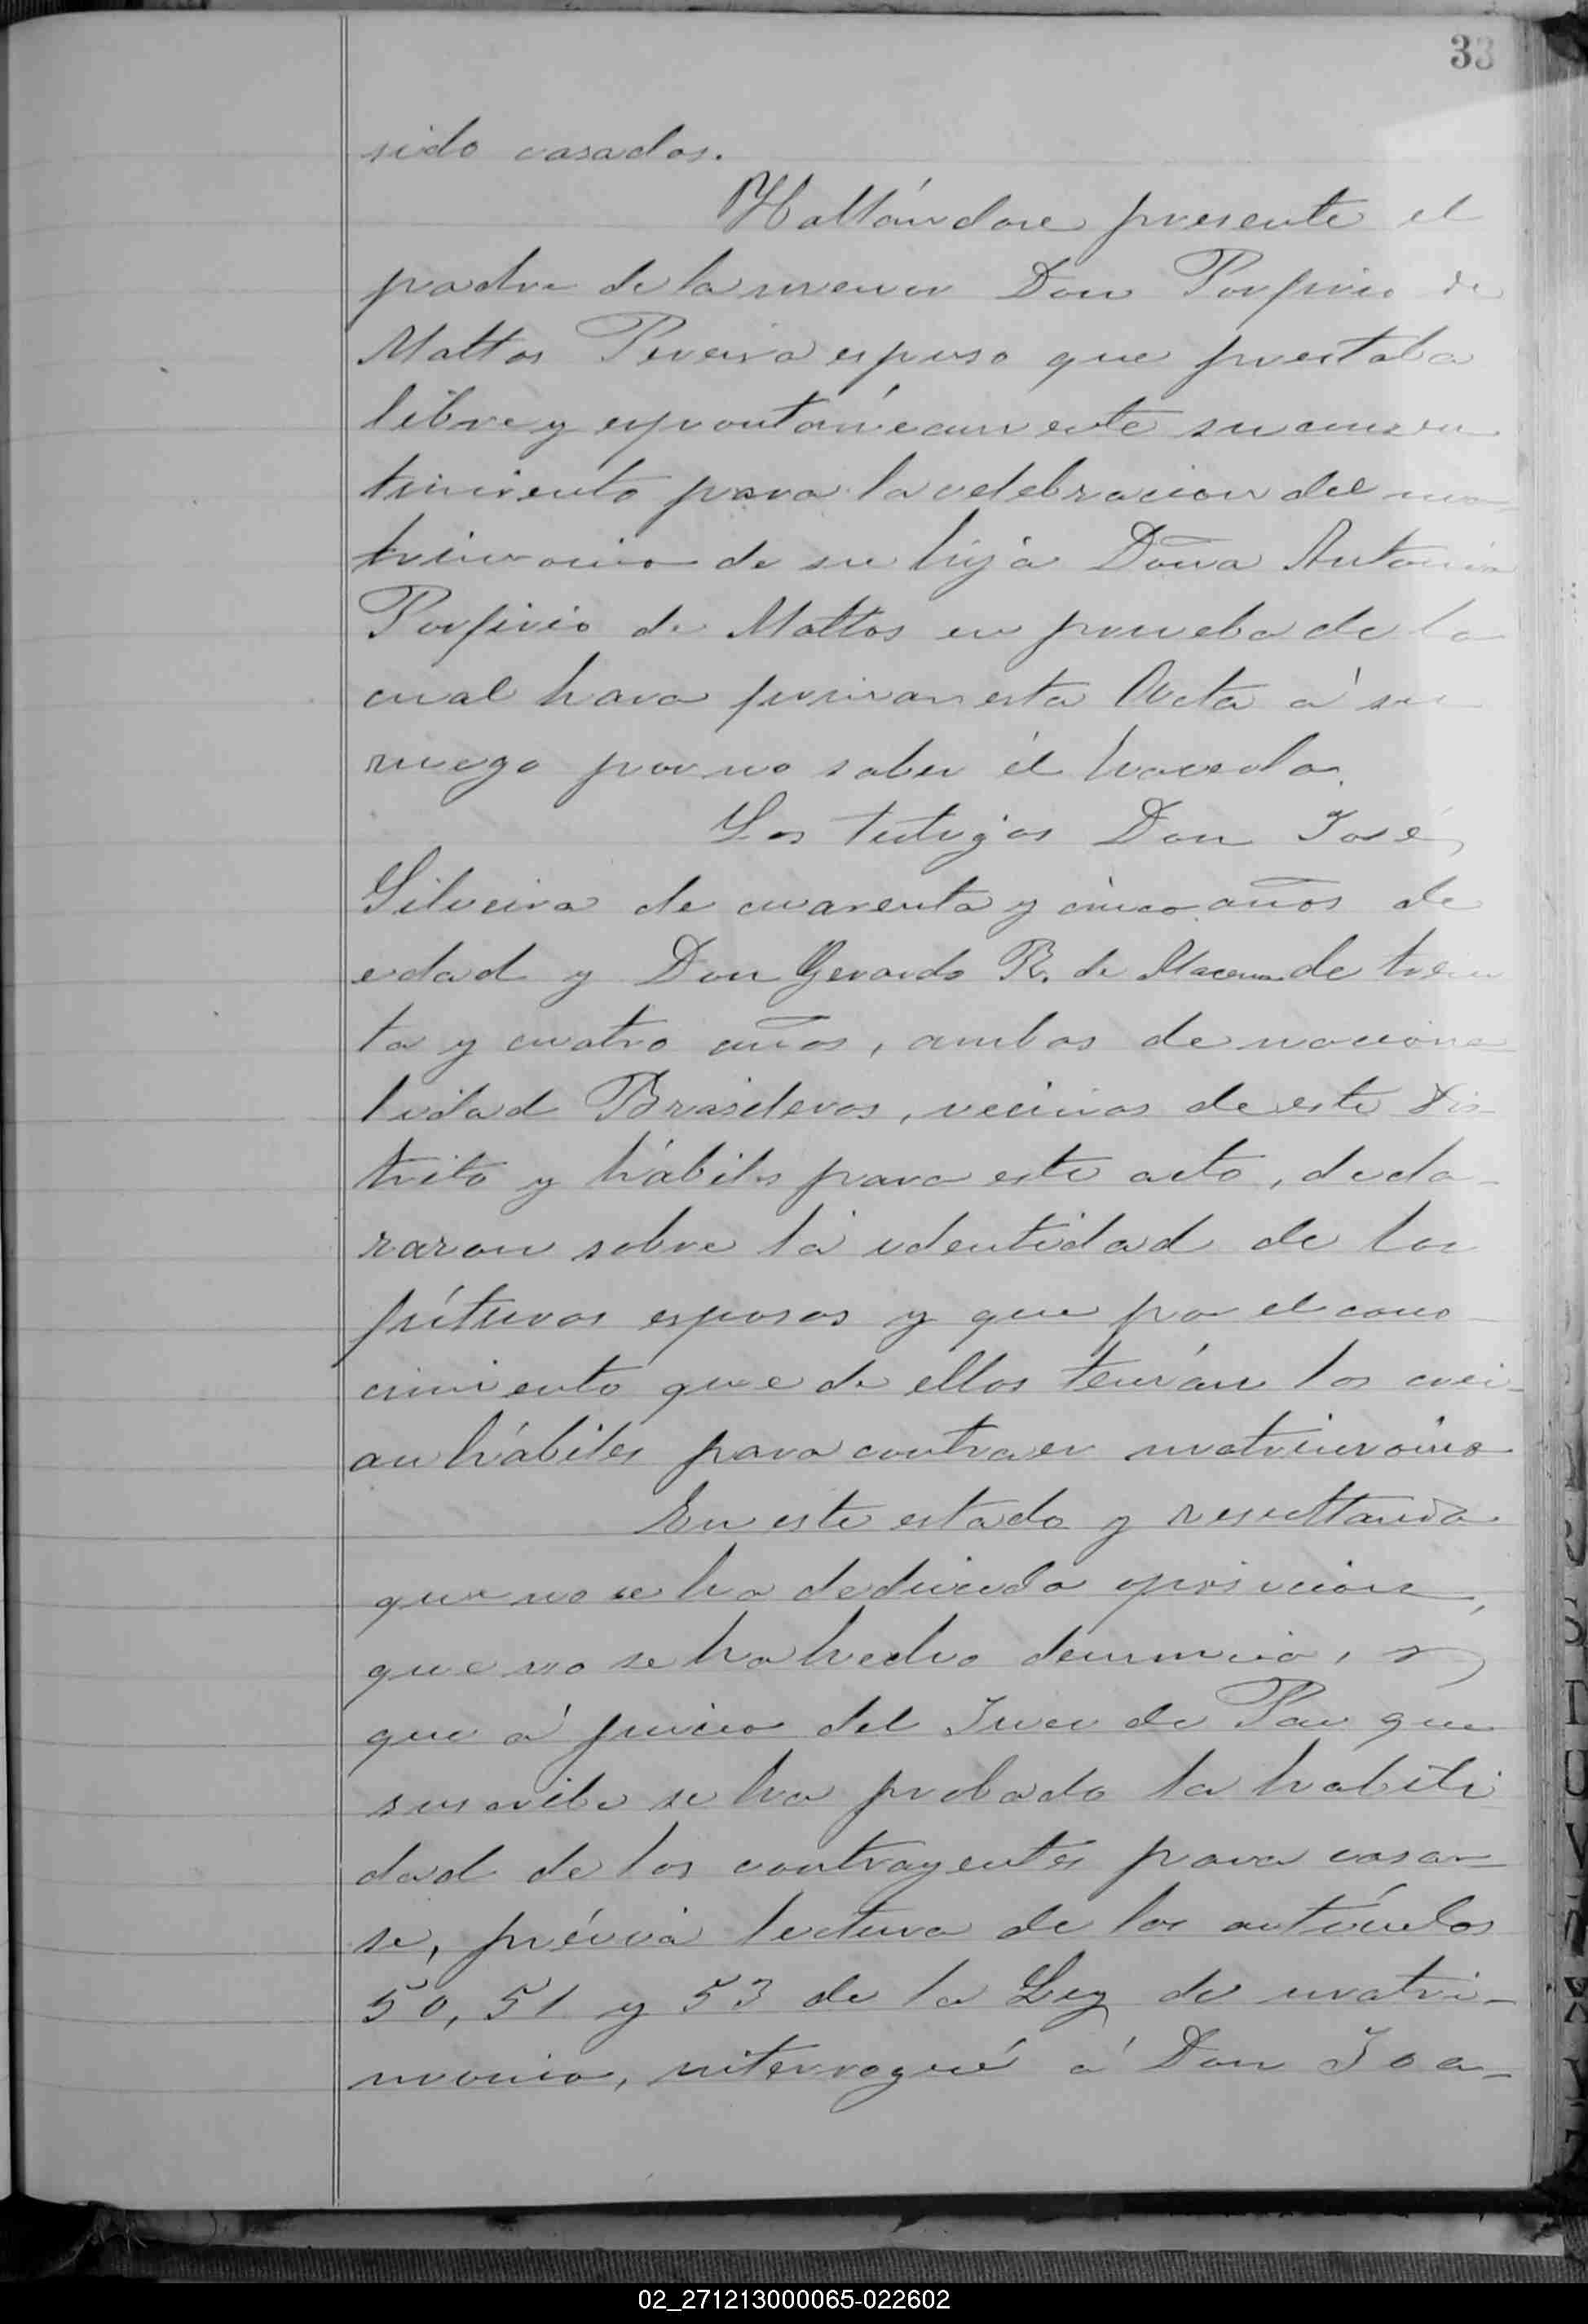 33
sido casados.
Hallándose presente el
padre de la menor Don Porfirio de
Mattos Pereira espuso que prestaba
libre y espontáneamente su consen
timiento para la celebracion del ma-
trimonio de su hija Doña Antonia
Porfirio de Mattos en prueba de lo
cual hara firmar esta Acta á su
ruego por no saber él hacerlo.
Los testigos Don José
Silveira de cuarenta y cinco años de
edad y Don Gerardo R. de de trein
ta y cuatro años, ambos de naciona
lidad Brasileros, vecinos de este Dis-
trito y hábiles para este acto, decla-
raron sobre la identidad de los
fúturos esposos y que por el cono-
cimiento que de ellos tenían los crei-
an hábiles para contraer matrimonio
En este estado y resultando
que no se ha deducido oposicion,
que no se ha hecho denuncia, y
que á juicio del Juez de Paz que
suscribe se ha probado la habili
dad de los contrayentes para casar-
se, prévia lectura de los artículos
50, 51 y 53 de la Ley de matri-
monio, interrogué á Don Joa-
02_271213000065-022602